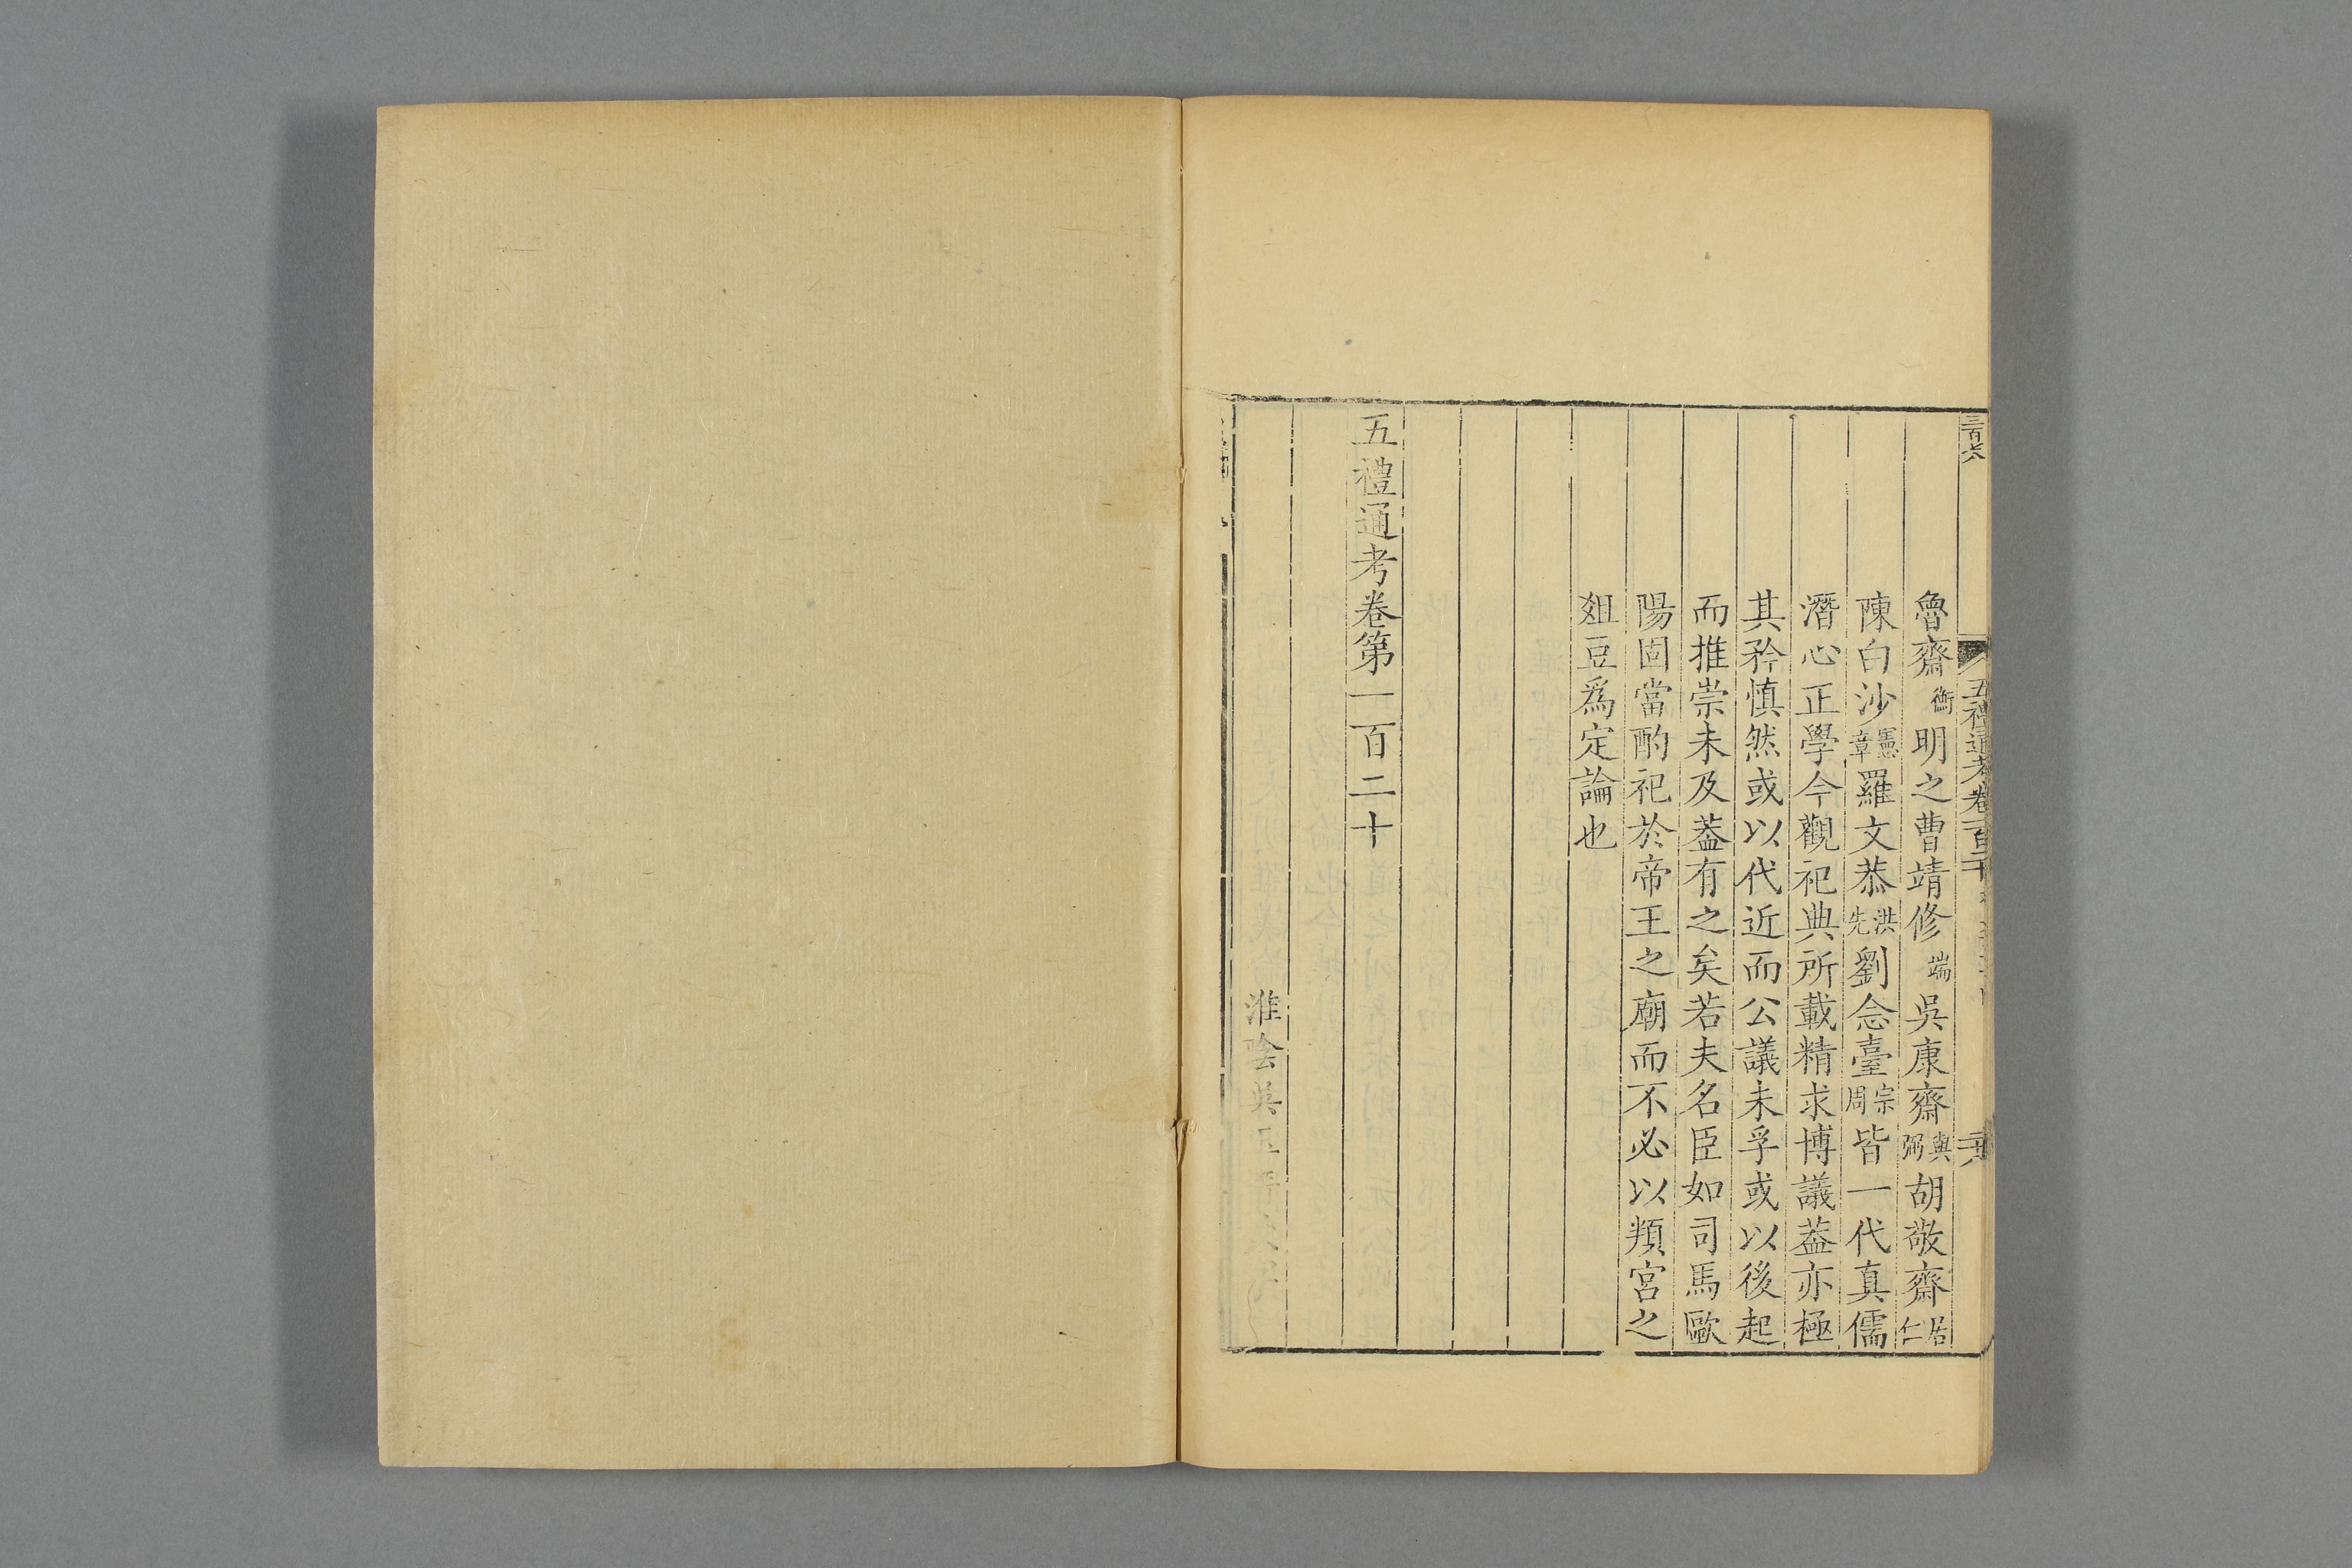 三百七八
五禮通考卷一百二十
二十八
魯齋衡明之曹靖修端吳康齋與弼胡敬齋居仁
陳白沙憲章羅文恭洪先劉念臺宗周皆一代真儒
潛心正學今觀祀典所載精求博議葢亦極
其矜慎然或以代近而公議未孚或以後起
而推崇未及葢有之矣若夫名臣如司馬歐
陽固當酌祀於帝王之廟而不必以頖宮之
爼豆爲定論也
五禮通考卷第一百二十
淮陰吳玉